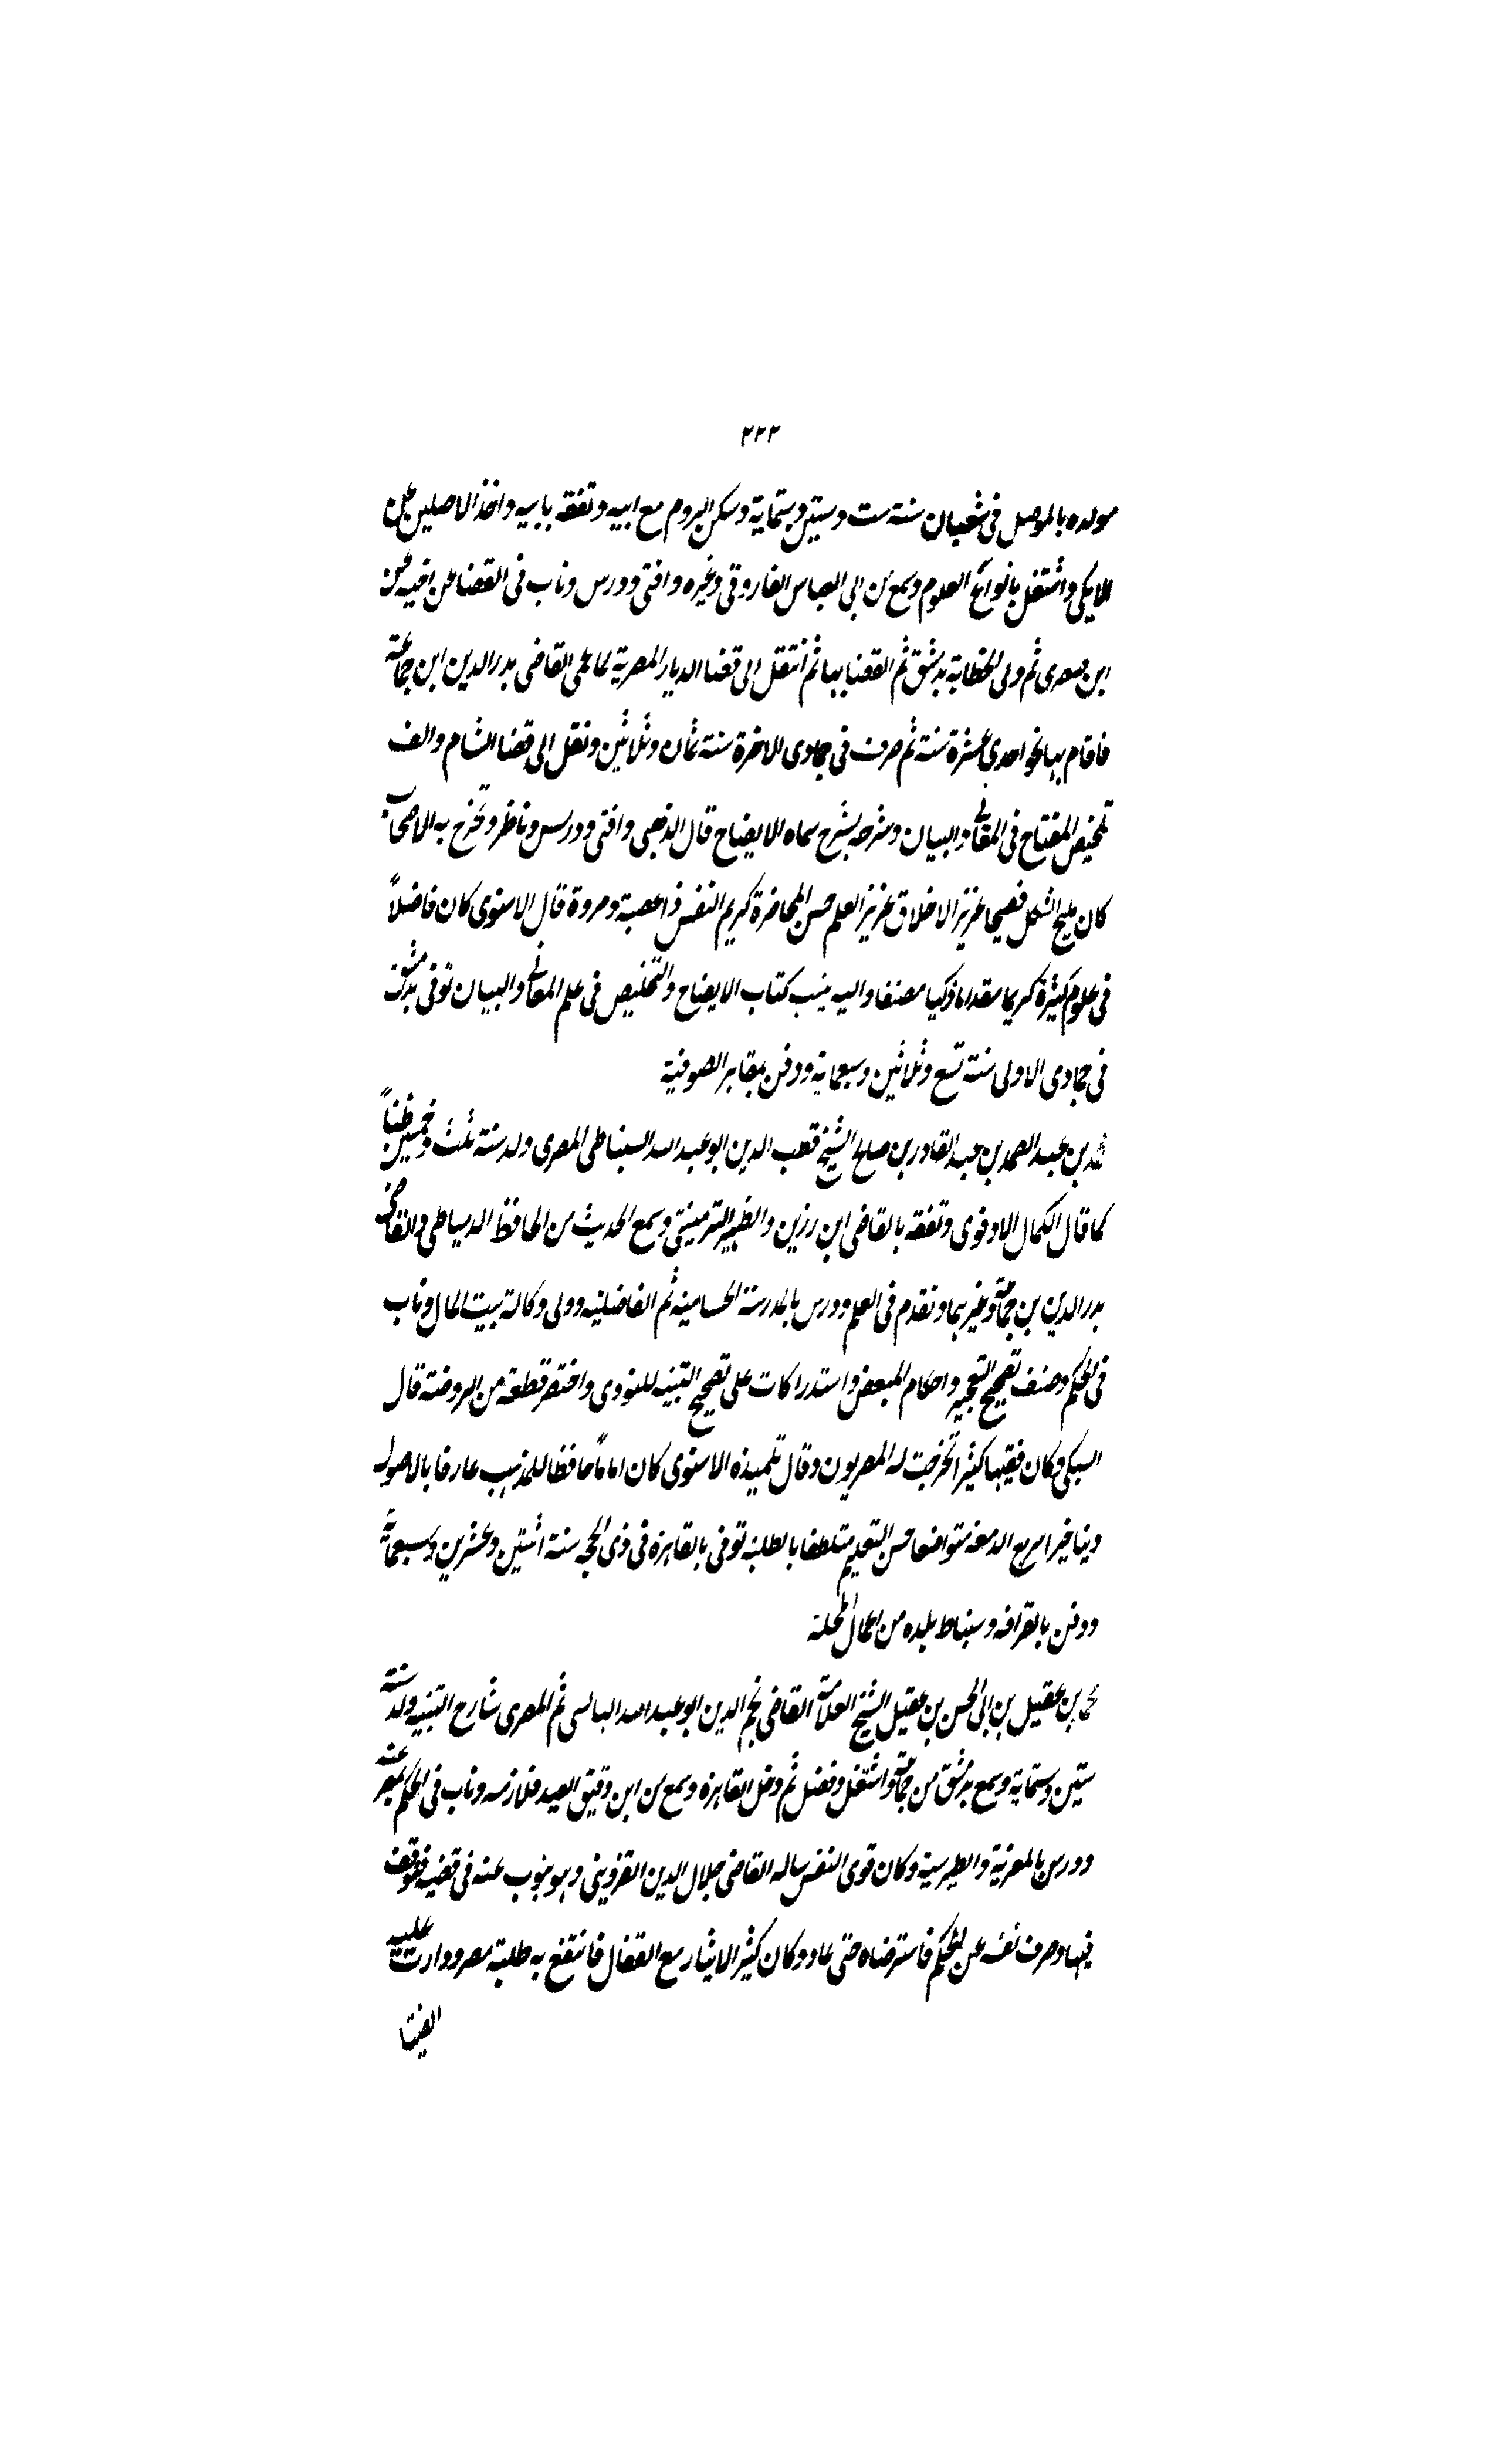 ٢٢٣
مولده بالموصل فى شعبان سنة ست وستين وستماية وسكن الروم مع ابيه وتفقه بابيه واخذ الاصلين عن
الايكى واشتغل بانواع العلوم وسمع من ابى العباس الفاروقى وغيره وافتى ودرس وناب فى القضا عن اخيه ثم عن
ابن صصرى ثم ولى الخطابة بدمشق ثم القضا بها ثم انتقل الى قضا الديار المصرية لما عمى القاضى بدرالدين ابن جماعة
فاقام بها نحو احدى عشرة سنة ثم صرف فى جمادى الاخرة سنة ثمان وثلاثين ونقل الى قضا الشام والف
تلخيص المفتاح فى المعانى والبيان وشرحه بشرح سماه الايضاح قال الذهبى وافتى ودرس وناظر وتخرج به الاصحاب
كان مليح الشكل فصيحا غزيز الاخلاق غزيز العلم حسن المحاضرة كريم النفس ذا عصبة ومروة قال الاسنوى كان فاضلاً
فى علوم كثيرة كريما مقداما ذكيا مصنفا واليه ينسب كتاب الايضاح والتلخيص فى علم المعانى والبيان توفى بدمشق
فى جمادى الاولى سنة تسع وثلاثين وسبعماية ودفن بمقابر الصوفية
محمد بن عبد الصمد بن عبد القادر بن صلح الشيخ قطب الدين ابو عبد الله السنباطى المصرى ولد سنة ثلث وخمسين ظناً
كما قال الكمال الادفوى وتفقه بالقاضى ابن رزين والظهير التزمينتى وسمع الحديث من الحافظ الدمياطى والقاضى
بدرالدين بن جماعة وغيرهما وتقدم فى العلم ودرس بالمدرسة الحسامية ثم الفاضلية وولى وكالة بيت المال وناب
فى الحكم وصنف تصحيح التعجيز واحكام المبعض واستدراكات على تصحيح التنبيه للنووى واختصر قطعة من الروضة قال
السبكى وكان فقيها كثيرا تخرجت له المصريون وقال تلميذه الاسنوى كان اماماً حافظا للمذهب عارفا بالاصول
دينا خيرا سريع الدمعة متواضعا حسن التعليم متلطفا بالطلبة توفى بالقاهرة فى ذى الحجه سنة اثنتين وعشرين وسبعماية
ودفن بالقرافه وسنباط بلده من اعمال المحلة
محمد بن عقيل بن ابى الحسن بن عقيل الشيخ العلامة القاضى نجم الدين ابو عبد الله البالسى ثم المصرى شارح التنبيه ولد سنة
ستين وستماية وسمع بدمشق من جماعة واشتغل وفضل ثم دخل القاهرة وسمع من ابن دقيق العيد فلازمه وناب فى الحكم بمصر عنه
ودرس بالمعزية والطيبرسية وكان قوى النفس ساله القاضى جلال الدين القزوينى وهو ينوب عنه فى قضيه فتوقف
فيها وصرف نفسه عن الحكم فاسترضاه حتى عاد وكان كثير الايثار مع القضال فانتفع به طلبة مصر ودارت عليه
الفتيا